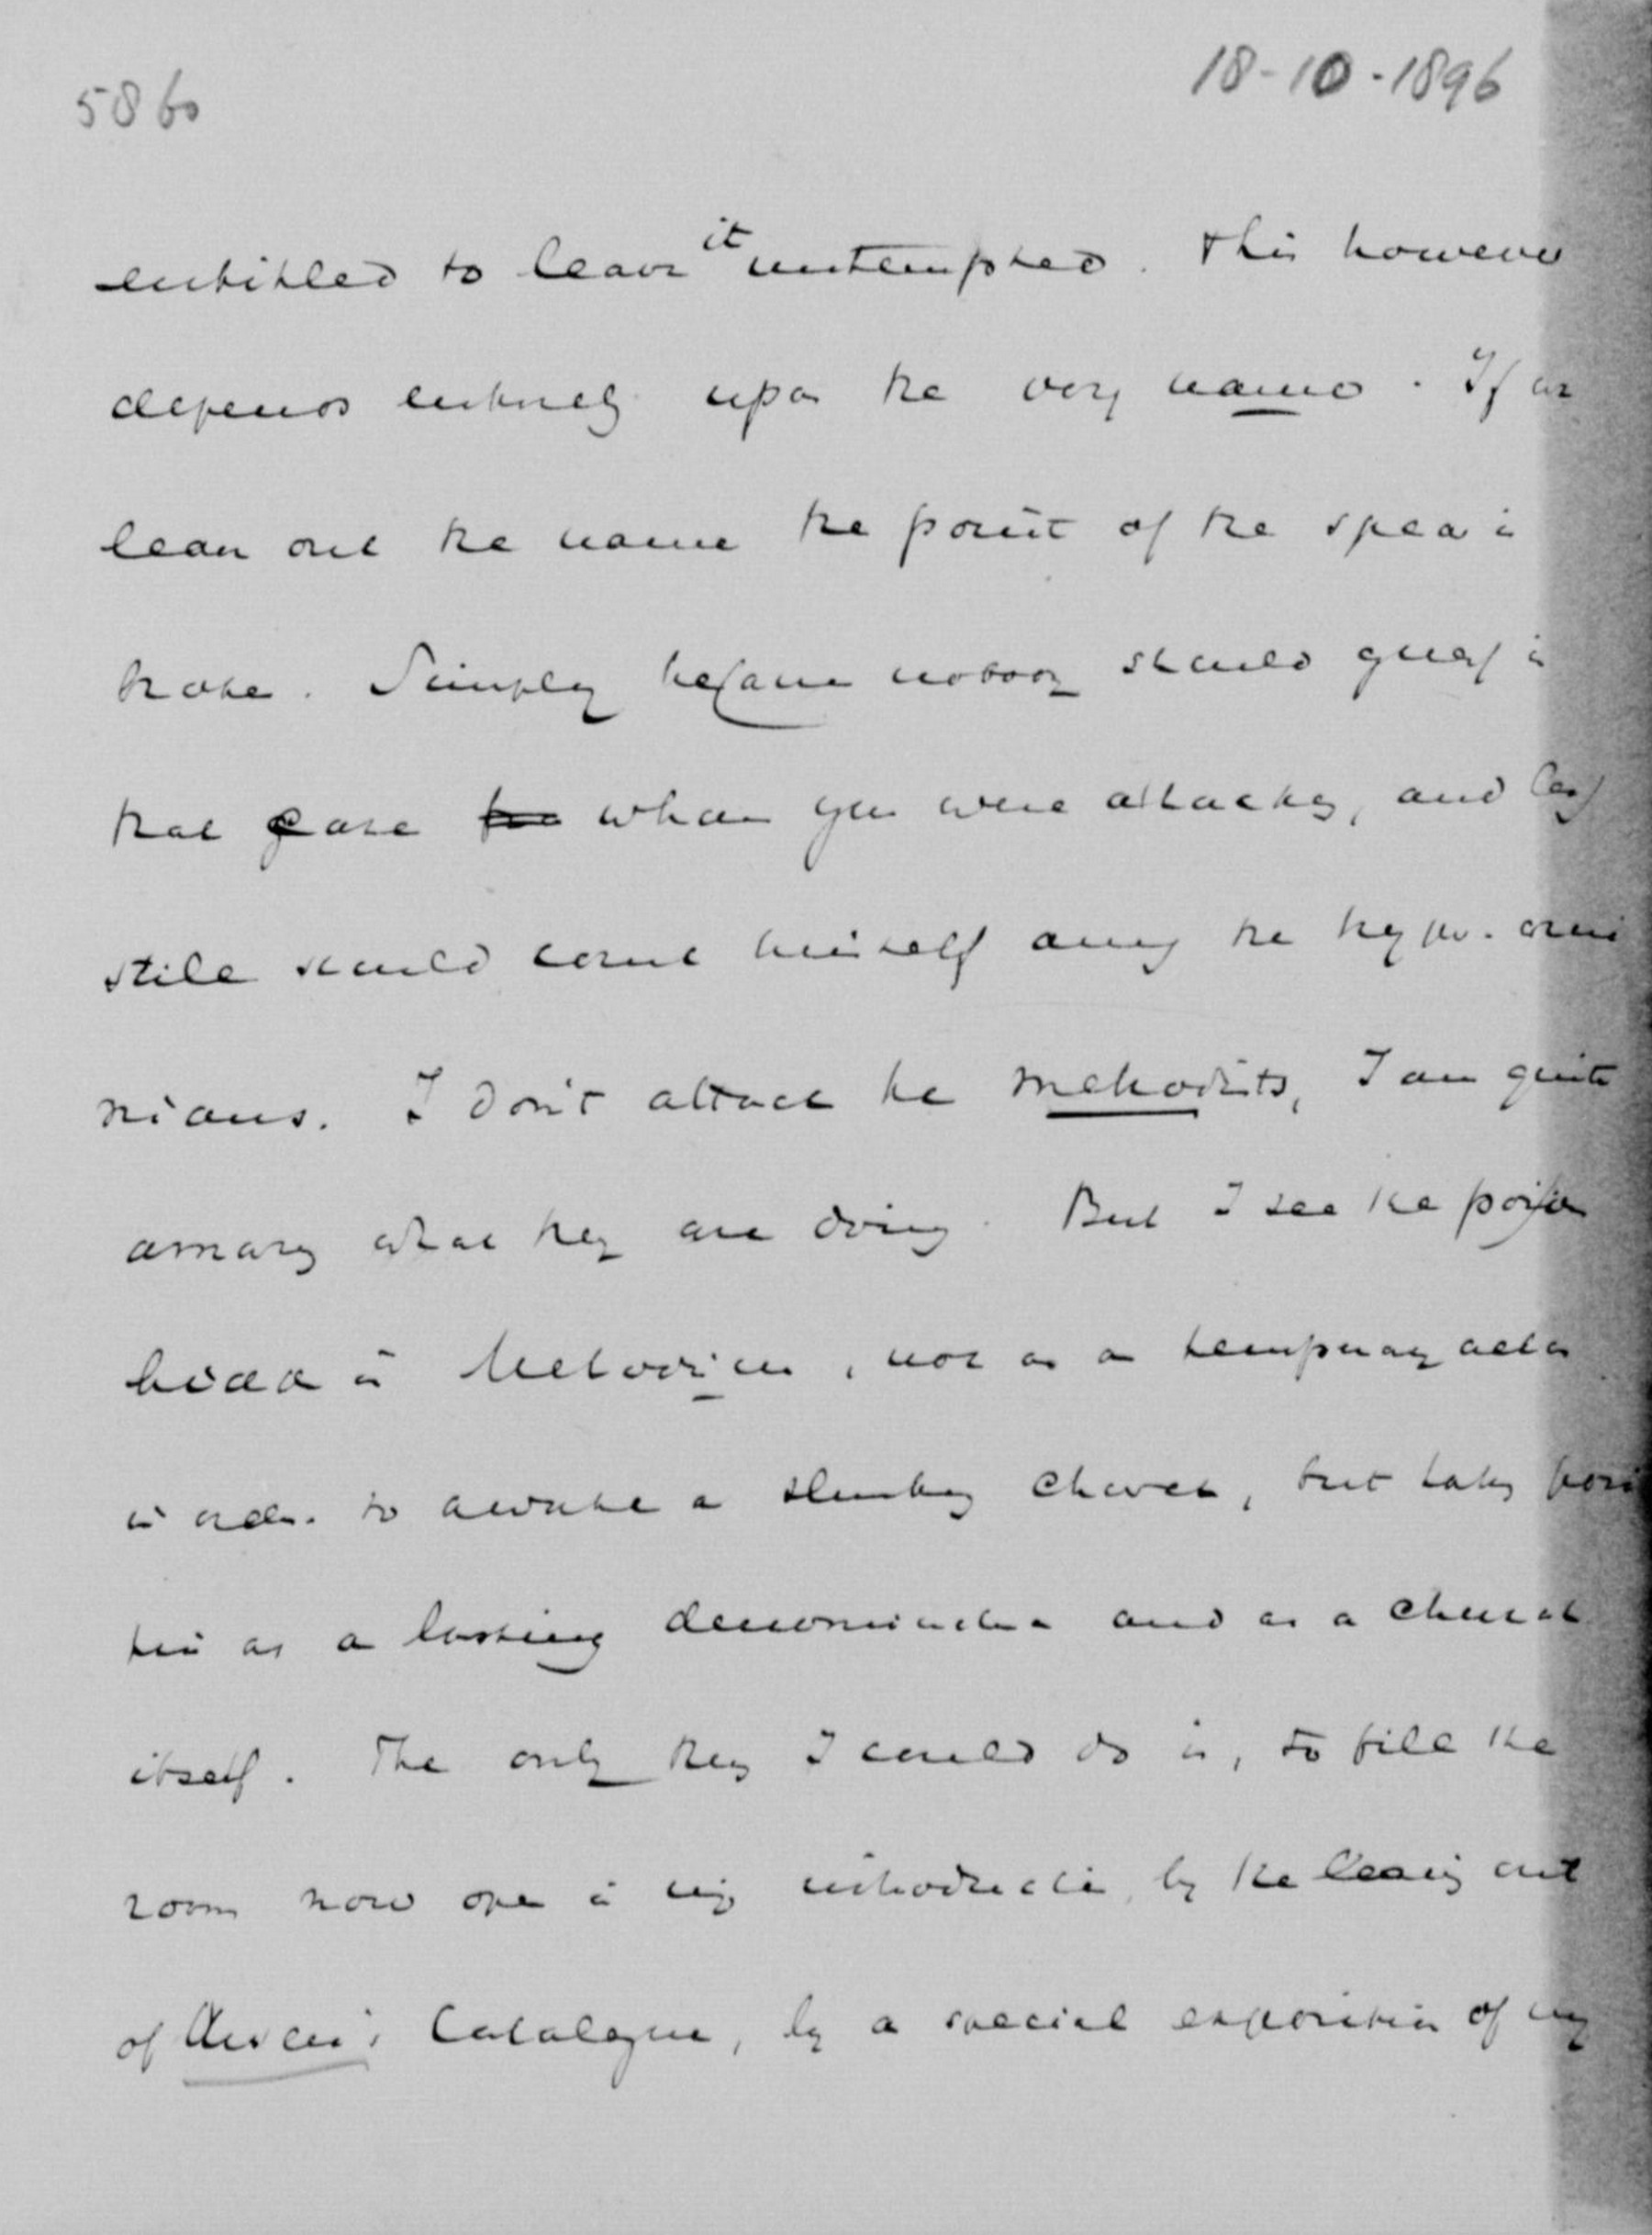 5860
18-10-1896
entitled to leave it untempted. This however
depends entirely upon the very name. If we
leave out the name the point of the spear is
broke. Simply because nobody should guess in
that case whom you were attacking, and
still should count himself among the
nians. I don't attack the Methodists, I am quite
what they are doing. But I see the poison
in Methodism, not as a temporary
in order to awake a slumbering Church, but taking posi
tion as a lasting denomination and as a Church
itself. The only thing I could do is, to fill the
room now open in my introduction, by the leaving out
of Catalogue, by a special exposition of my